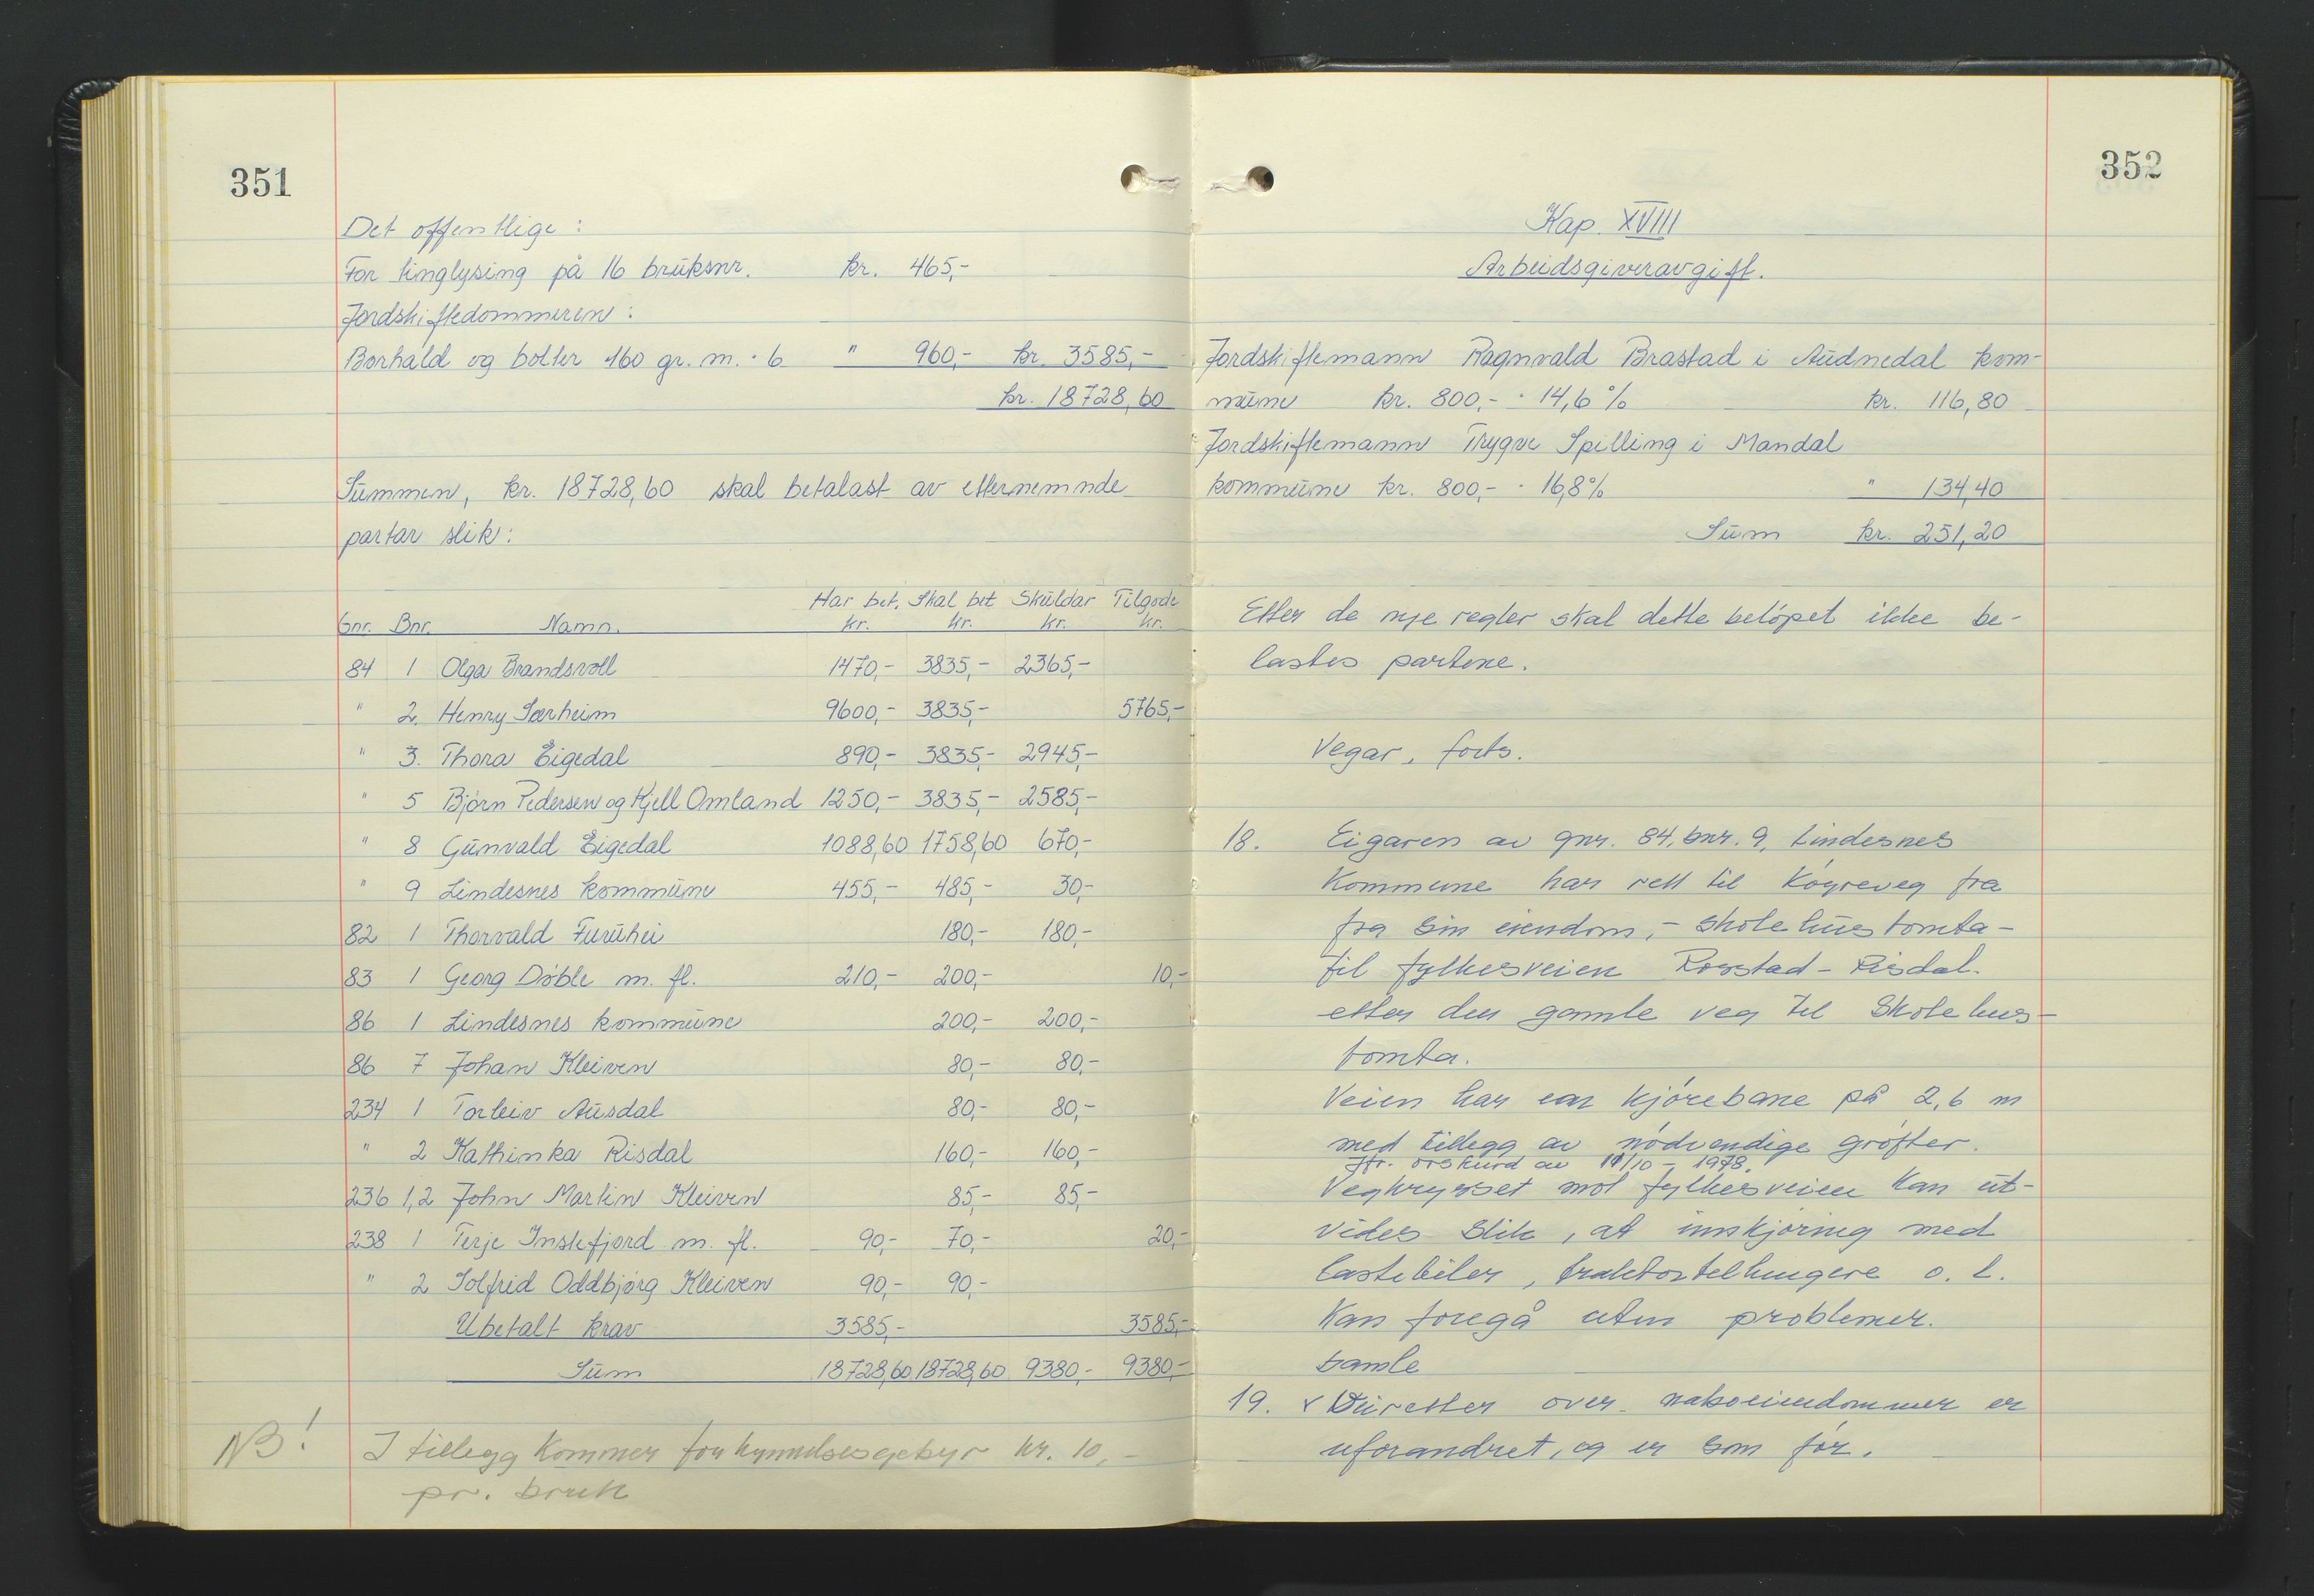 351
Det offentlige:
For tinglysing på 16 bruksnr. kr. 465,-
Jordskiftedommeren:
Borhald og bolter 160 gr. m. · 6 " 960,- kr. 3585,-
kr. 18728,60
Summen, kr. 18728,60 skal betalast av etternemnde
partar slik:
Har bet. Skal bet Skuldar Tilgode
Gnr. Bnr. Namn. kr. kr. kr. kr.
84 1 Olga Brandsvoll 1470,- 3835,- 2365,-
" 2. Henry Særheim 9600,- 3835,- 5765,-
" 3. Thora Eigedal 890,- 3835,- 2945,-
" 5 Bjørn Pedersen og Kjell Omland 1250,- 3835,- 2585,-
" 8 Gunvald Eigedal 1088,60 1758,60 670,-
" 9 Lindesnes kommune 455,- 485,- 30,-
82 1 Thorvald Furuhei 180,- 180,-
83 1 Georg Døble m. fl. 210,- 200,- 10,-
86 1 Lindesnes kommune 200,- 200,-
86 7 Johan Kleiven 80,- 80,-
234 1 Torleiv Ausdal 80,- 80,-
" 2 Kathinka Risdal 160,- 160,-
236 1,2 John Martin Kleiven 85,- 85,-
238 1 Terje Instefjord m. fl. 90,- 70,- 20,-
" 2 Solfrid Oddbjørg Kleiven 90,- 90,-
Ubetalt krav 3585,- 3585,-
Sum 18728,60 18728,60 9380,- 9380,-
NB! I tillegg kommer forkynnelsesgebyr kr. 10,-
pr. bruk
352
Kap. XVIII
Arbeidsgiveravgift.
Jordskiftemann Ragnvald Brastad i Audnedal kom-
mune kr. 800,- · 14,6 % kr. 116,80
Jordskiftemann Trygve Spilling i Mandal
kommune kr. 800,- · 16,8% " 134,40
Sum kr. 251,20
Etter de nye regler skal dette beløpet ikke be-
lastes partene.
Vegar, forts.
18. Eigaren av gnr. 84, bnr. 9, Lindesnes
Kommune har rett til køyreveg fra
fra sin eiendom, - skolehustomta -
til fylkesveien Rosstad - Risdal.
etter den gamle veg til Skolehus-
tomta.
Veien har ein kjørebane på 2,6 m
med tillegg av nødvendige grøfter.
Jfr. orskurd av 11/10 - 1978.
Vegkrysset mot fylkesveien kan ut-
vides slik, at innkjøring med
lastebiler, traktortelhengere o. l.
kan foregå uten problemer.
Gamle
19. x Veiretter over naboeiendommer er
uforandret, og er som før.